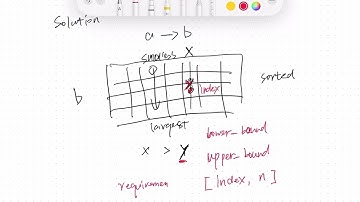 Solution
a → b
smallest x
b
index
sorted
largest
x > y
lower_bound
upper_bound
requiremen
[index, n]